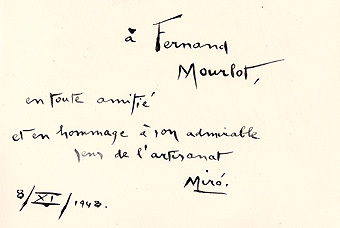 à Fernand
Mourlot,
en toute amitié
et en hommage à son admirable
sens de l'artisanat
Miró.
8/XI/1948.